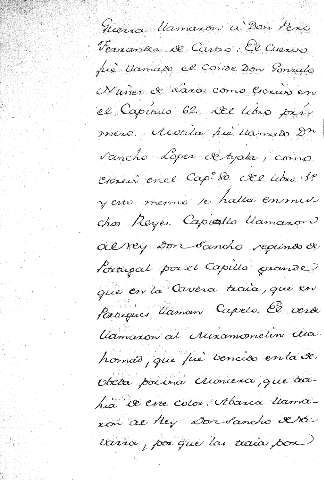 Guerra llamaron á Don Pero
Fernandez de Castro. El Cuervo
fué llamado el conde Don Gonzalo
Nuñez de Lara, como escrivo en
el Capitulo 62. del libro pri-
mero. Motila fué llamado Dn
Sancho Lopez de Ayala, como
escrivi en el Capo 80. del libro 1o
y esto mesmo se halla en mu-
chos Reyes. Capiello llamaron
al Rey Don Sancho segundo de
Portugal por el Capillo grande
que en la Cavera traia, que en
Portugues llaman Capelo. El verde
llamaron al Miramomelin Ma-
homad, que fué vencido en la de
Ubeda por una Montera, que tra-
hia de este color. Abarca llama-
ron al Rey Don Sancho de Na-
varra, por que las traia por